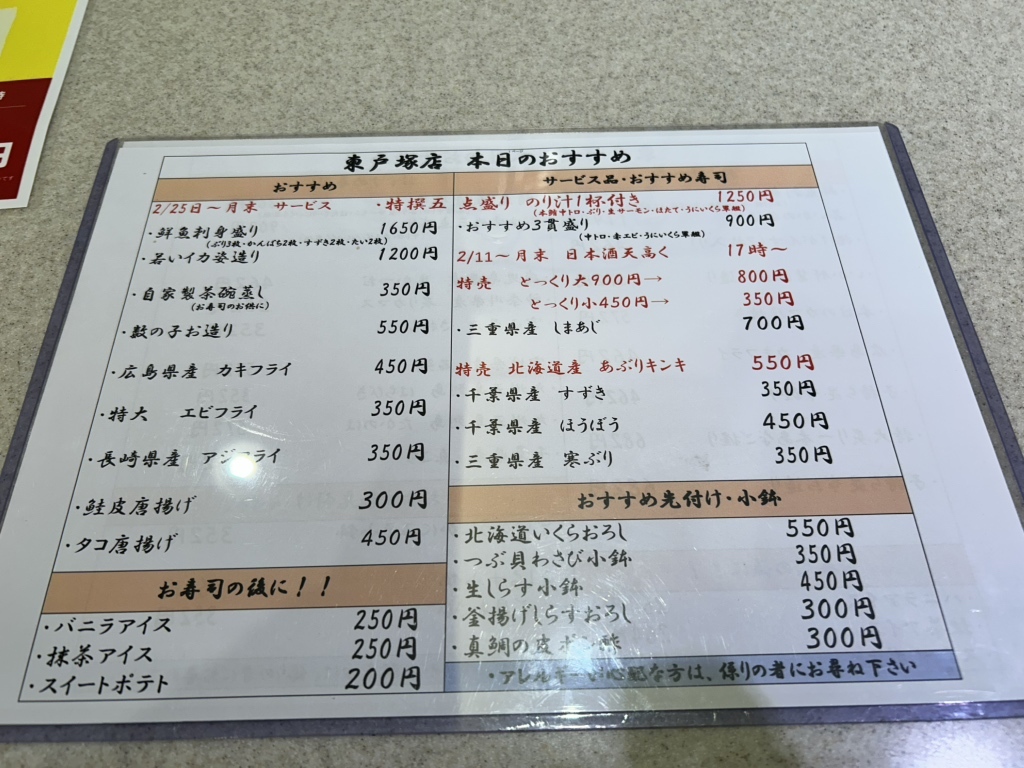 東戸塚店 本日のおすすめ
おすすめ
2/25日～月末 サービス ・特撰五点盛り のり汁1杯付き 1250円
(本鮪中トロ・ぶり・生サーモン・ほたて・うにいくら軍艦)
・鮮魚刺身盛り 1650円
(ぶり3枚・かんぱち2枚・すずき2枚・たい2枚)
・若いイカ姿造り 1200円
・自家製茶碗蒸し 350円
(お寿司のお供に)
・数の子お造り 550円
・広島県産 カキフライ 450円
・特大 エビフライ 350円
・長崎県産 アジフライ 350円
・鮭皮唐揚げ 300円
・タコ唐揚げ 450円
お寿司の後に！！
・バニラアイス 250円
・抹茶アイス 250円
・スイートポテト 200円
サービス品・おすすめ寿司
・おすすめ3貫盛り 900円
(中トロ・赤エビ・うにいくら軍艦)
2/11～月末 日本酒天高く 17時～
特売 とっくり大900円→ 800円
とっくり小450円→ 350円
・三重県産 しまあじ 700円
特売 北海道産 あぶりキンキ 550円
・千葉県産 すずき 350円
・千葉県産 ほうぼう 450円
・三重県産 寒ぶり 350円
おすすめ先付け・小鉢
・北海道いくらおろし 550円
・つぶ貝わさび小鉢 350円
・生しらす小鉢 450円
・釜揚げしらすおろし 300円
・真鯛の皮ポン酢 300円
・アレルギーが心配な方は、係りの者にお尋ね下さい
円